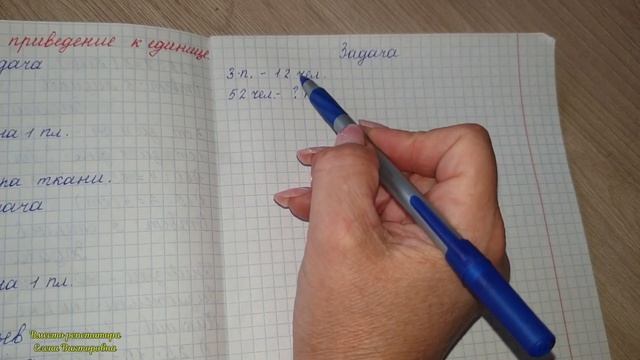 приведение к единице
дача
на 1 пл.
па ткани.
ача
на 1 пл.
ев
Задача
3 п. - 12 чел.
52 чел. - ?
Вместо репетитора
Елена Викторовна